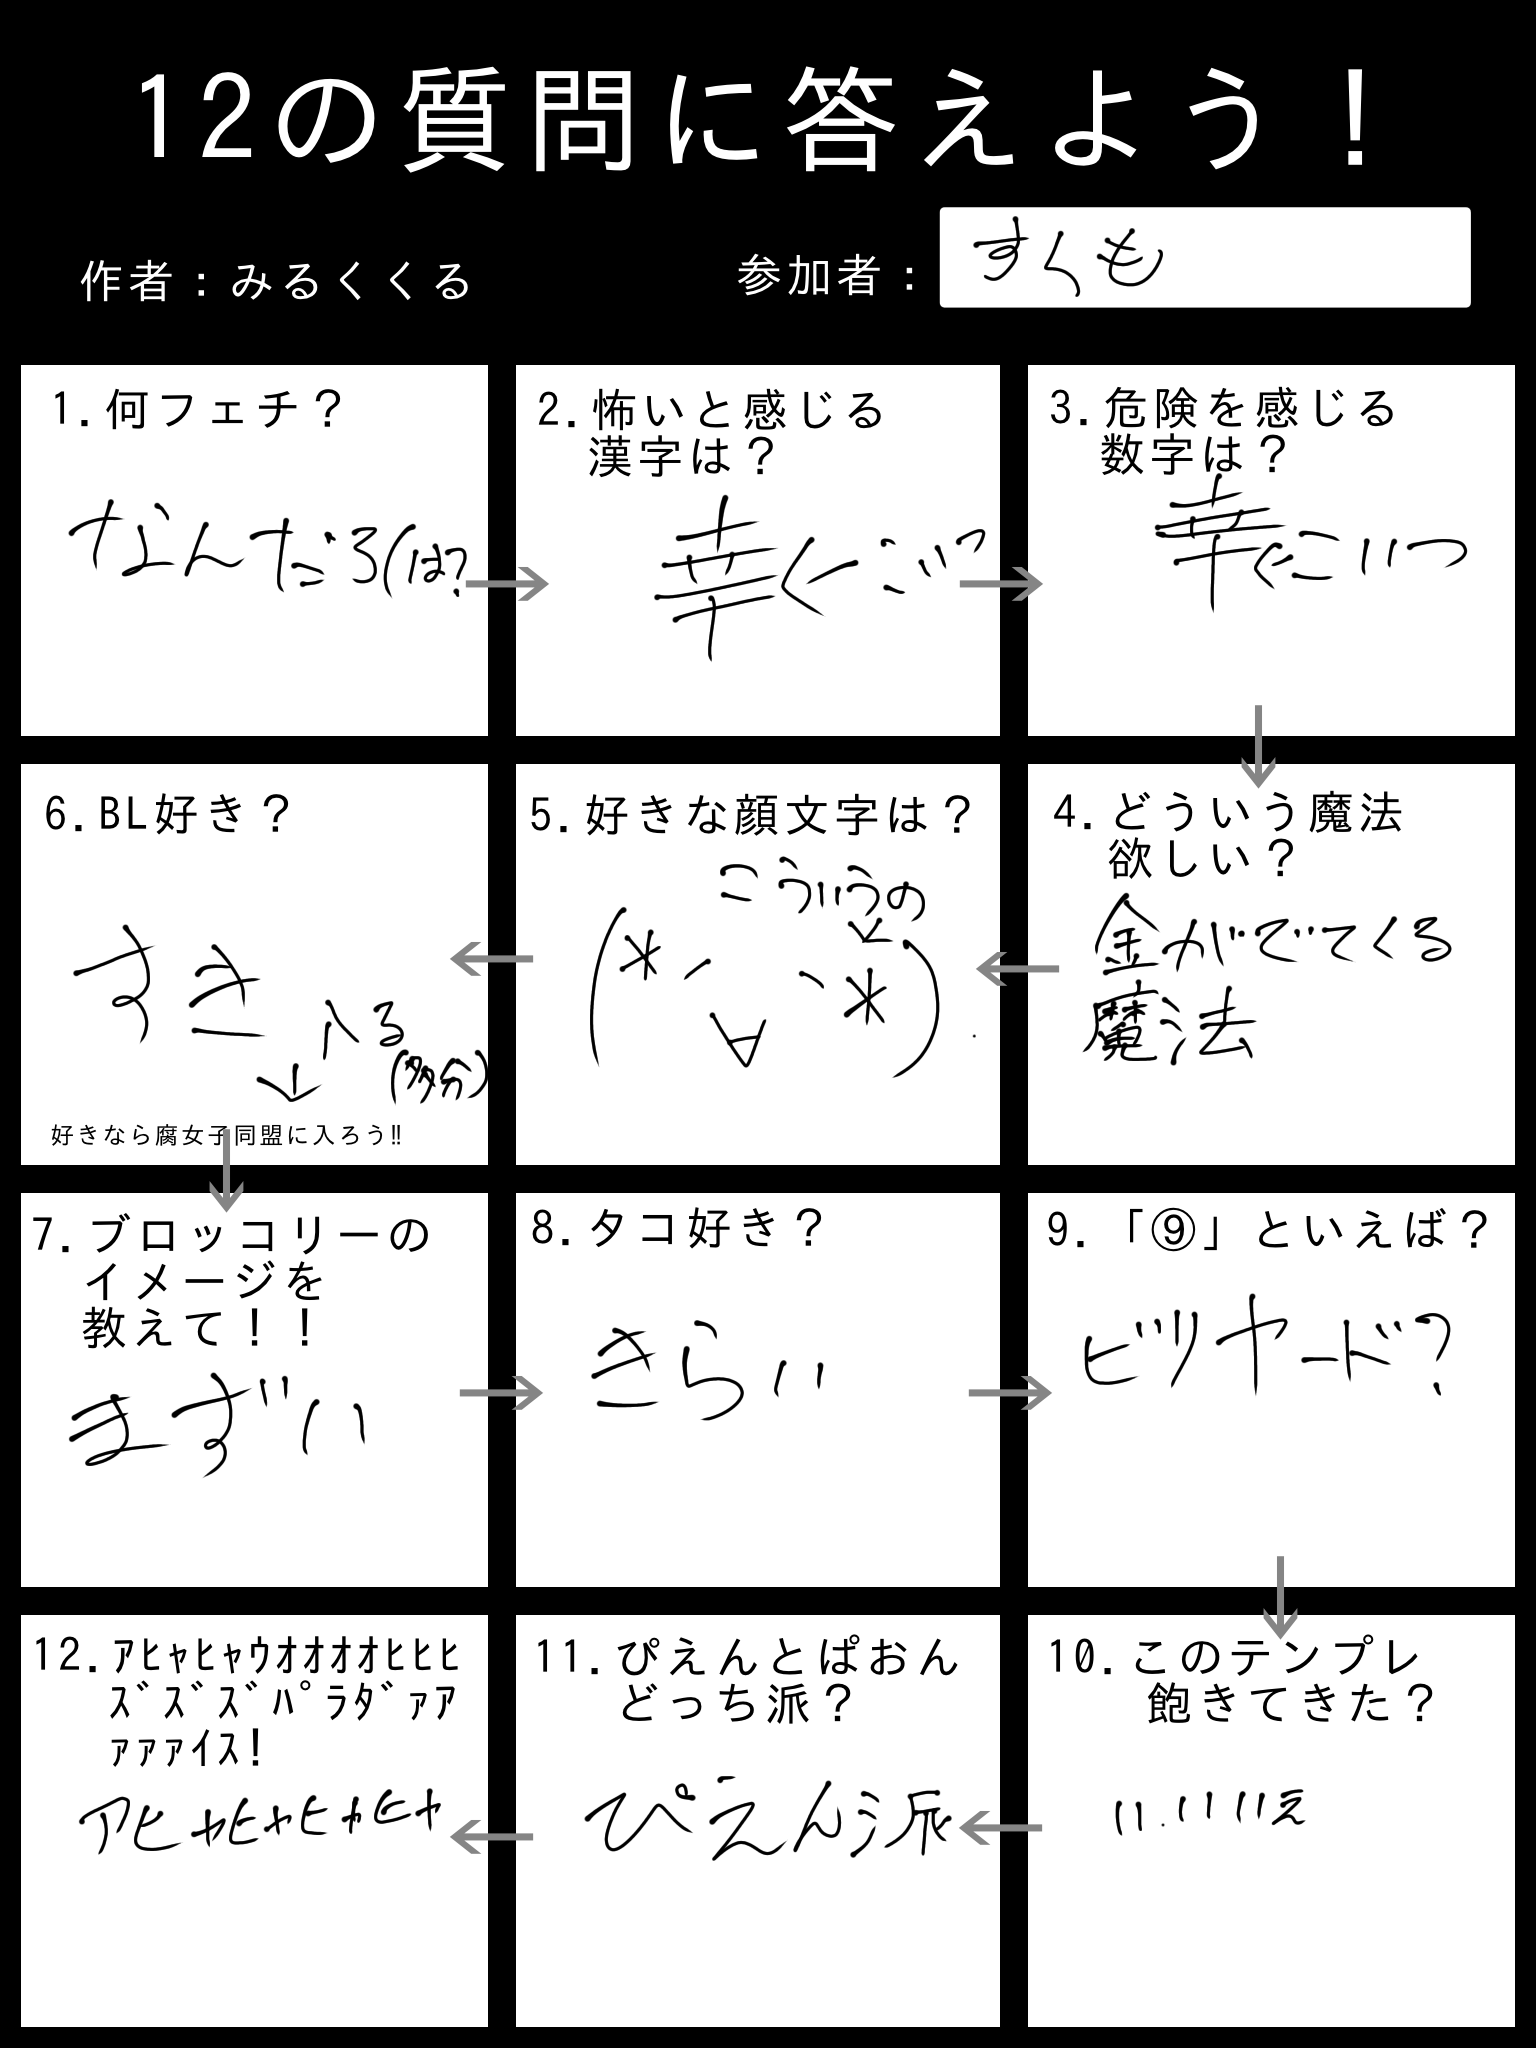 12の質問に答えよう！
作者：みるくくる
参加者：
すくも
1.何フェチ？
なんだろ(は?
2.怖いと感じる
漢字は？
3.危険を感じる
数字は？
4.どういう魔法
欲しい？
金がでてくる
魔法
5.好きな顔文字は？
こういうの
↓
(*´∀｀*)
6.BL好き？
すき
入る
(多分)
↓
好きなら腐女子同盟に入ろう!!
7.ブロッコリーの
イメージを
教えて！！
まずい
8.タコ好き？
きらい
9.「⑨」といえば？
ビリヤード?
10.このテンプレ
飽きてきた？
いいいえ
11.ぴえんとぱおん
どっち派？
ぴえん派
12.ｱﾋｬﾋｬｳｵｵｵｵﾋﾋﾋ
ｽﾞｽﾞｽﾞﾊﾟﾗﾀﾞｧｱ
ｧｧｧｲｽ!
アヒャヒャヒャヒャ